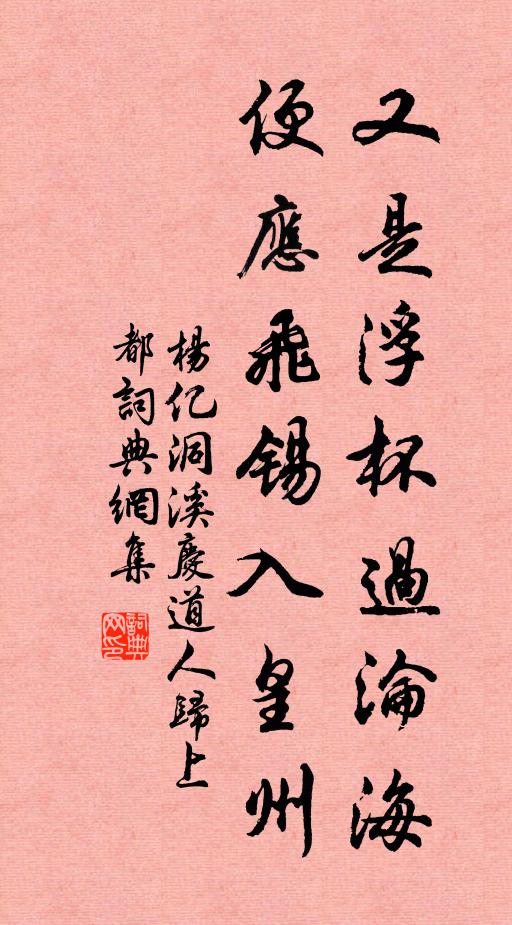 又是浮杯過淪海
便應飛錫入皇州
楊億洞溪慶道人歸上
都詞典網集
詞典網印